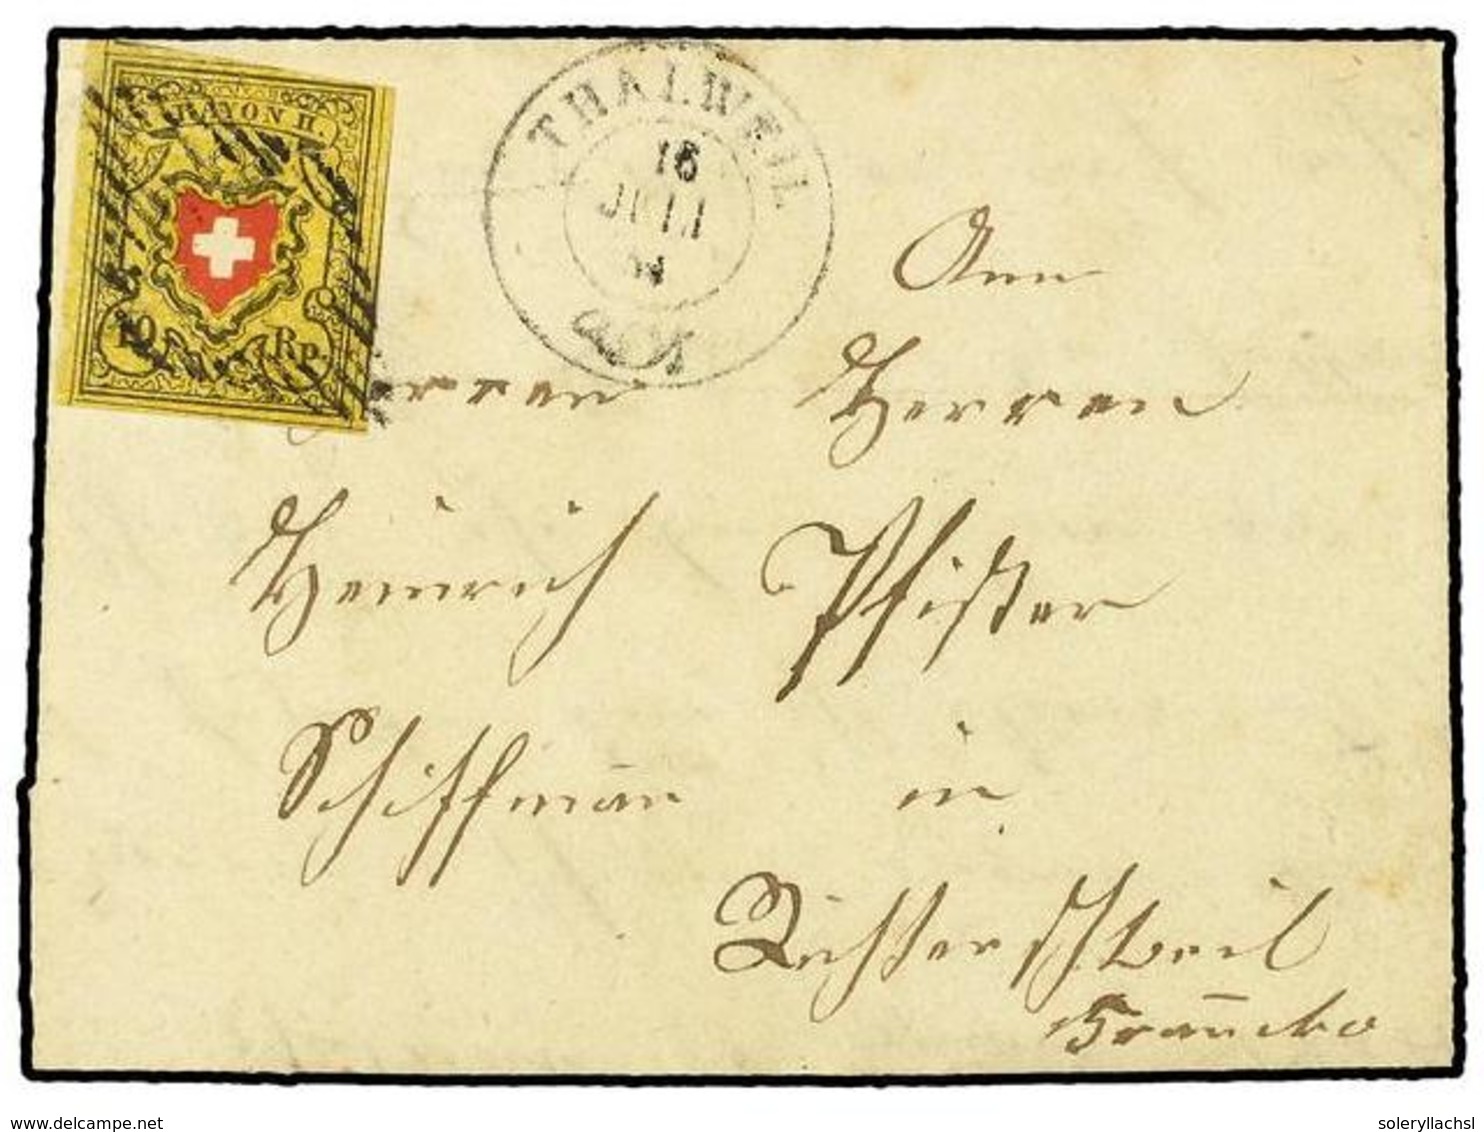 RAYON II.
10 Rp.
THALWEIL
16
JULI
Ann
Herren Herren
Heinrich Pfister
Schiffman in
Richterschweil
Francko
www.delcampe.net
soleryllachsl